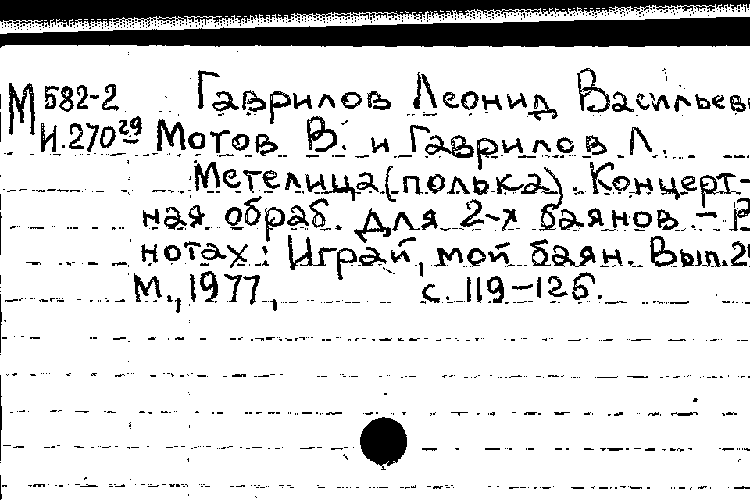 М 582-2 Гаврилов Леонид Васильев
И.270 29 Мотов В. и Гаврилов Л.
Метелица (полька). Концерт-
ная обраб. для 2-х баянов. – В
нотах: Играй, мой баян. Вып. 2
М., 1977, с. 119-126.